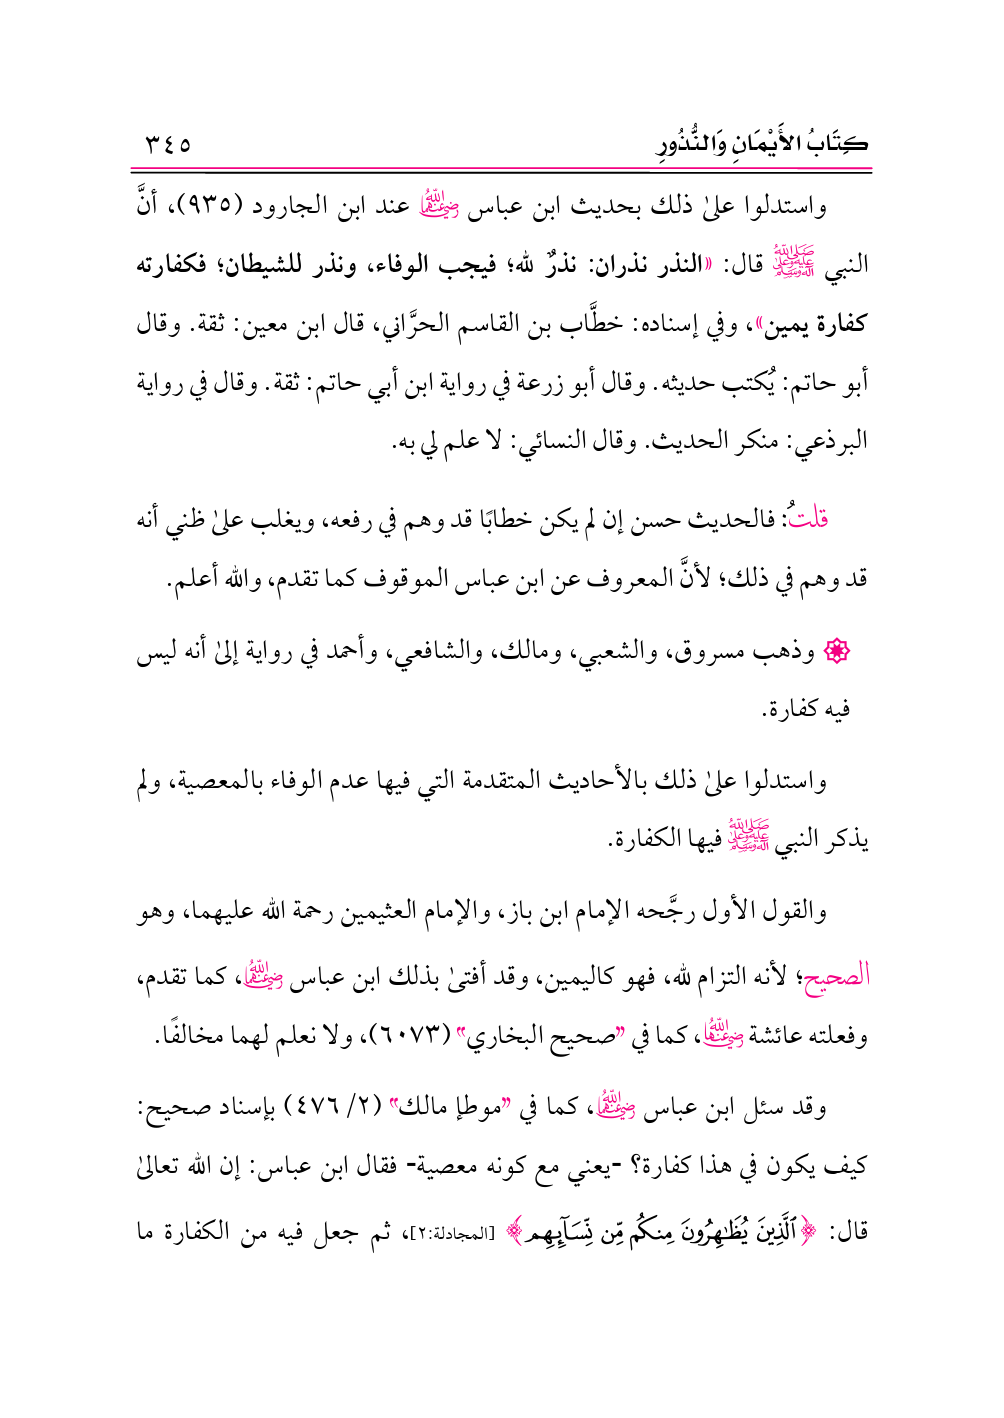 كِتَابُ الأَيْمَانِ وَالنُّذُورِ ٣٤٥
واستدلوا علىٰ ذلك بحديث ابن عباس رضي الله عنهما عند ابن الجارود (٩٣٥)، أنَّ
النبي ﷺ قال: «النذر نذران: نذرٌ لله؛ فيجب الوفاء، ونذر للشيطان؛ فكفارته
كفارة يمين»، وفي إسناده: خطَّاب بن القاسم الحرَّاني، قال ابن معين: ثقة. وقال
أبو حاتم: يُكتب حديثه. وقال أبو زرعة في رواية ابن أبي حاتم: ثقة. وقال في رواية
البرذعي: منكر الحديث. وقال النسائي: لا علم لي به.
قلتُ: فالحديث حسن إن لم يكن خطابًا قد وهم في رفعه، ويغلب علىٰ ظني أنه
قد وهم في ذلك؛ لأنَّ المعروف عن ابن عباس الموقوف كما تقدم، والله أعلم.
وذهب مسروق، والشعبي، ومالك، والشافعي، وأحمد في رواية إلىٰ أنه ليس
فيه كفارة.
واستدلوا علىٰ ذلك بالأحاديث المتقدمة التي فيها عدم الوفاء بالمعصية، ولم
يذكر النبي ﷺ فيها الكفارة.
والقول الأول رجَّحه الإمام ابن باز، والإمام العثيمين رحمة الله عليهما، وهو
الصحيح؛ لأنه التزام لله، فهو كاليمين، وقد أفتىٰ بذلك ابن عباس رضي الله عنهما، كما تقدم،
وفعلته عائشة رضي الله عنها، كما في "صحيح البخاري" (٦٠٧٣)، ولا نعلم لهما مخالفًا.
وقد سئل ابن عباس رضي الله عنهما، كما في "موطإ مالك" (٢/ ٤٧٦) بإسناد صحيح:
كيف يكون في هذا كفارة؟ -يعني مع كونه معصية- فقال ابن عباس: إن الله تعالىٰ
قال: ﴿ٱلَّذِينَ يُظَٰهِرُونَ مِنكُم مِّن نِّسَآئِهِم﴾ [المجادلة:٢]، ثم جعل فيه من الكفارة ما